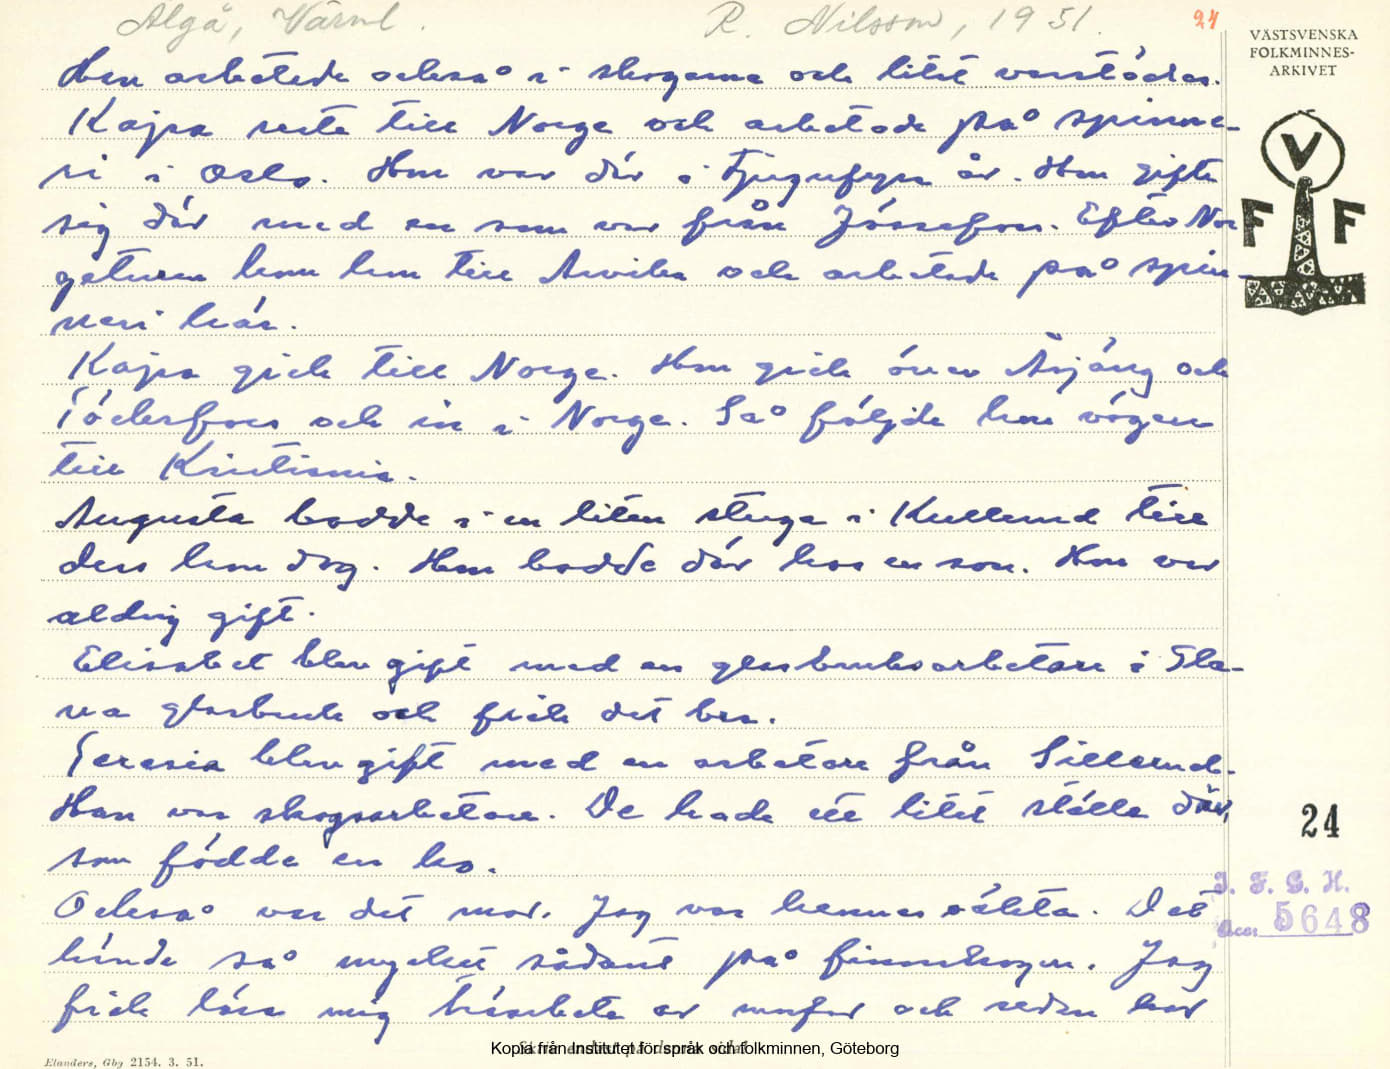 Algå, Värml.
R. Nilsson, 1951.
24
VÄSTSVENSKA
FOLKMINNES-
ARKIVET
V
F F
Hon arbetade också i skogarna och litet varstädes.
Kajsa reste till Norge och arbetade på spinne-
ri i Oslo. Hon var där i tjugufyra år. Hon gifte
sig där med en som var från Jössefors. Efter Nor
geturen kom hon till Arvika och arbetade på spin-
neri här.
Kajsa gick till Norge. Hon gick över Årjäng och
Töcksfors och in i Norge. Så följde hon vägen
till Kristiania.
Augusta bodde i en liten stuga i Kullerud till
dess hon dog. Hon bodde där hos en son. Hon var
aldrig gift.
Elisabet blev gift med en glasbruksarbetare i Gla-
va glasbruk och fick det bra.
Teresia blev gift med en arbetare från Sillerud.
Han var skogsarbetare. De hade ett litet ställe där,
som födde en ko.
Också var det mor. Jag var hennes oäkta. Det
hände så mycket sådant på finnskogen. Jag
fick lära mig träarbete av morfar och sedan har
24
I. F. G. H.
Acc. 5648
Elanders, Gbg 2154. 3. 51.
Kopia från Institutet för språk och folkminnen, Göteborg